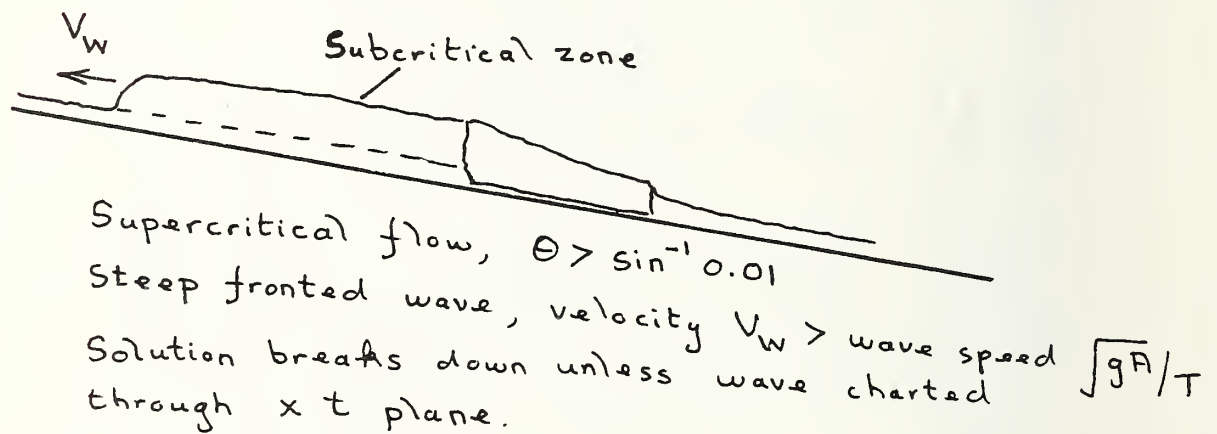 Vw
Subcritical zone
Supercritical flow, Θ > sin⁻¹ 0.01
Steep fronted wave, velocity Vw > wave speed √gA/T
Solution breaks down unless wave charted
through x t plane.